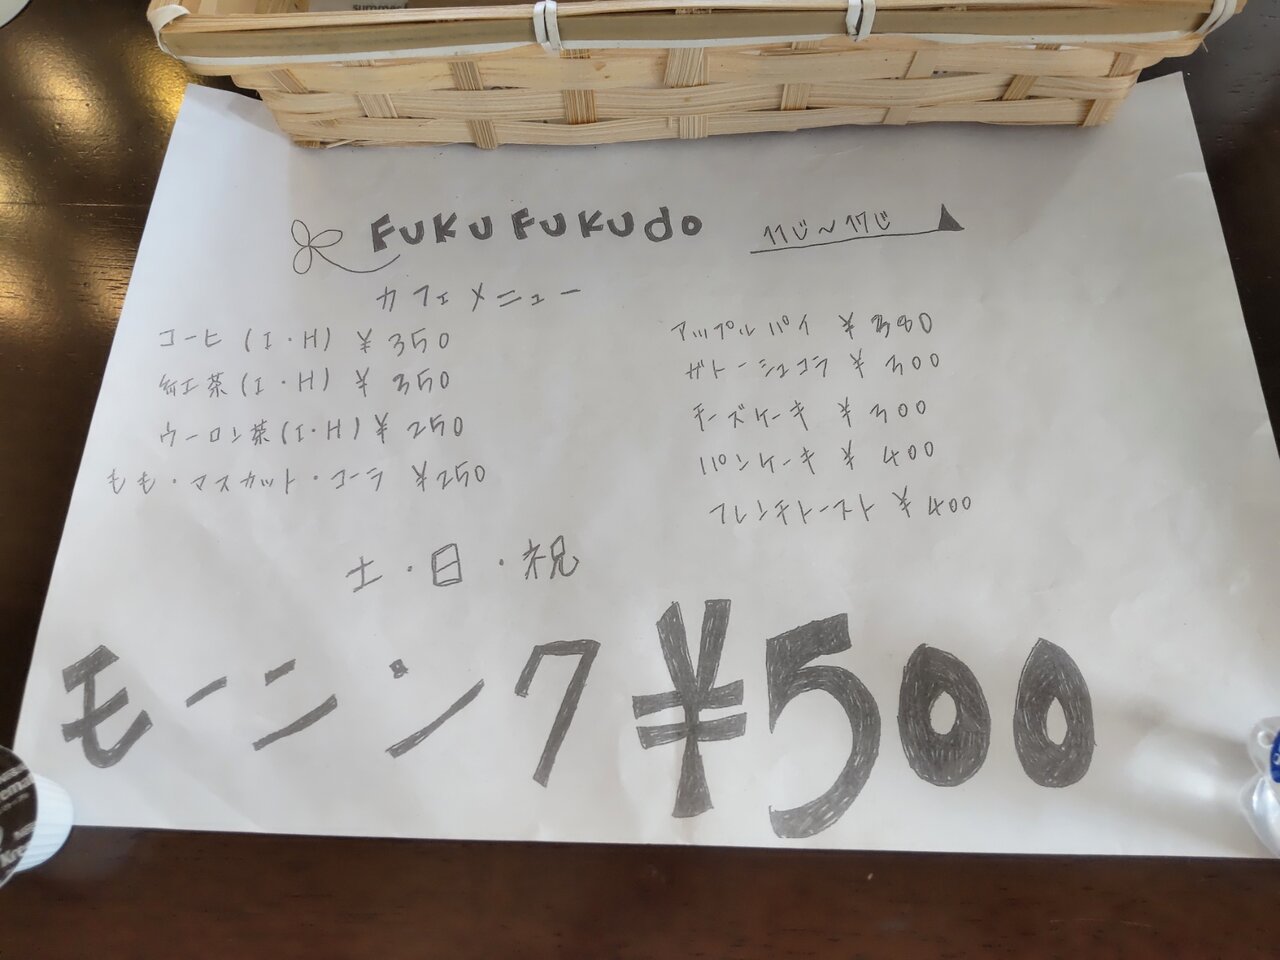 summer
FUKU FUKUdo
11じ～17じ
カフェメニュー
コーヒ (I・H) ¥350
紅茶 (I・H) ¥350
ウーロン茶 (I・H) ¥250
もも・マスカット・コーラ ¥250
アップルパイ ¥380
ザトーショコラ ¥300
チーズケーキ ¥300
パンケーキ ¥400
フレンチトースト ¥400
土・日・祝
モーニング ¥500